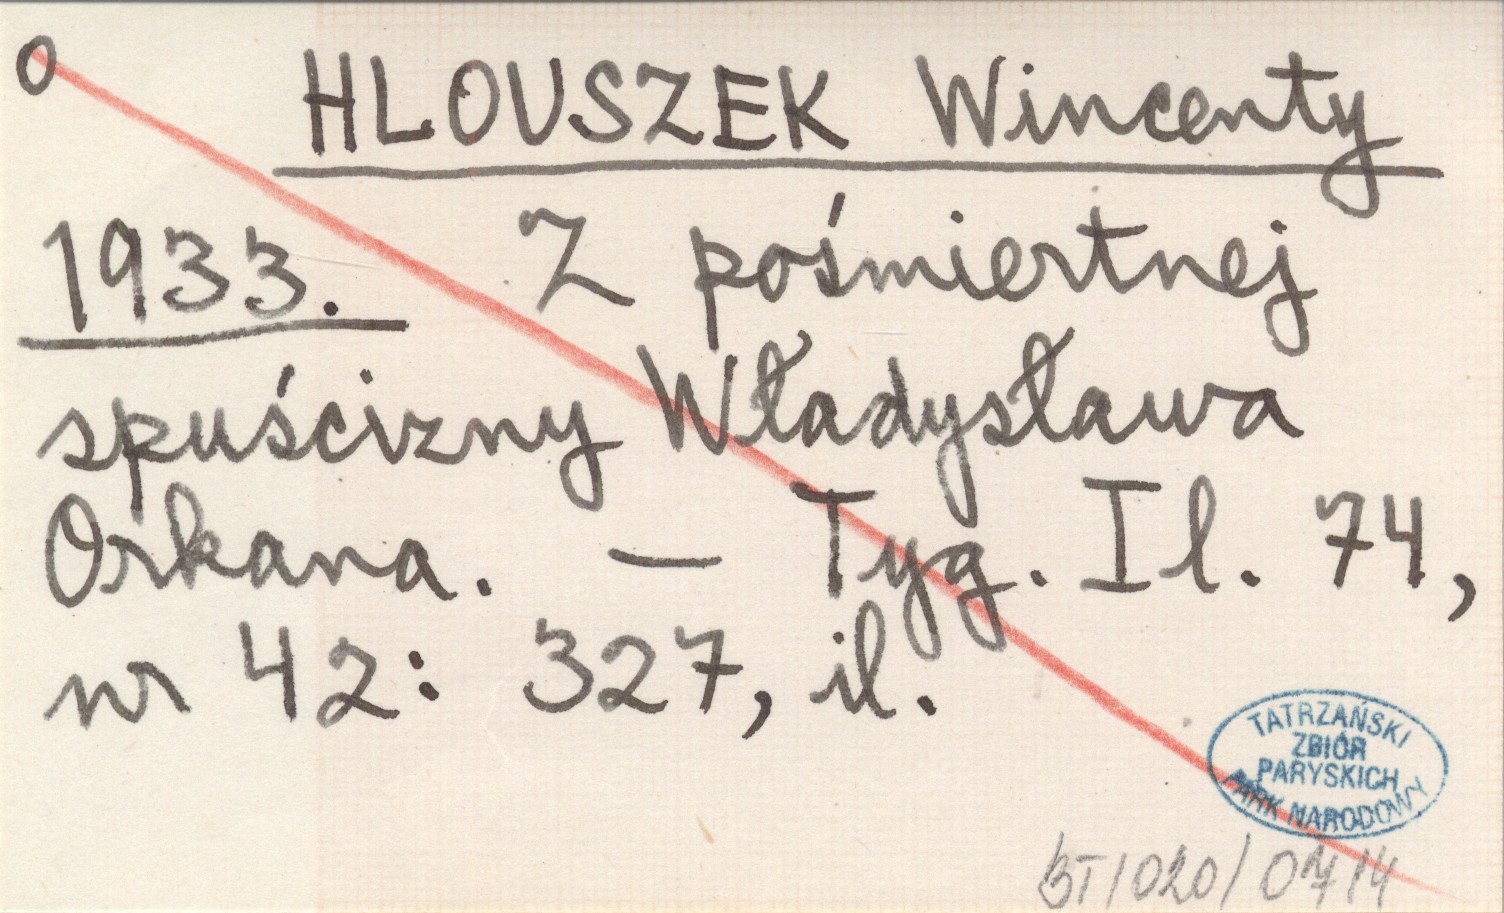 O
HLOUSZEK Wincenty
1933. Z pośmiertnej
spuścizny Władysława
Orkana. — Tyg. Il. 74,
nr 42: 327, il.
TATRZAŃSKI
ZBIÓR
PARYSKICH
PARK NARODOWY
BT/020/0714